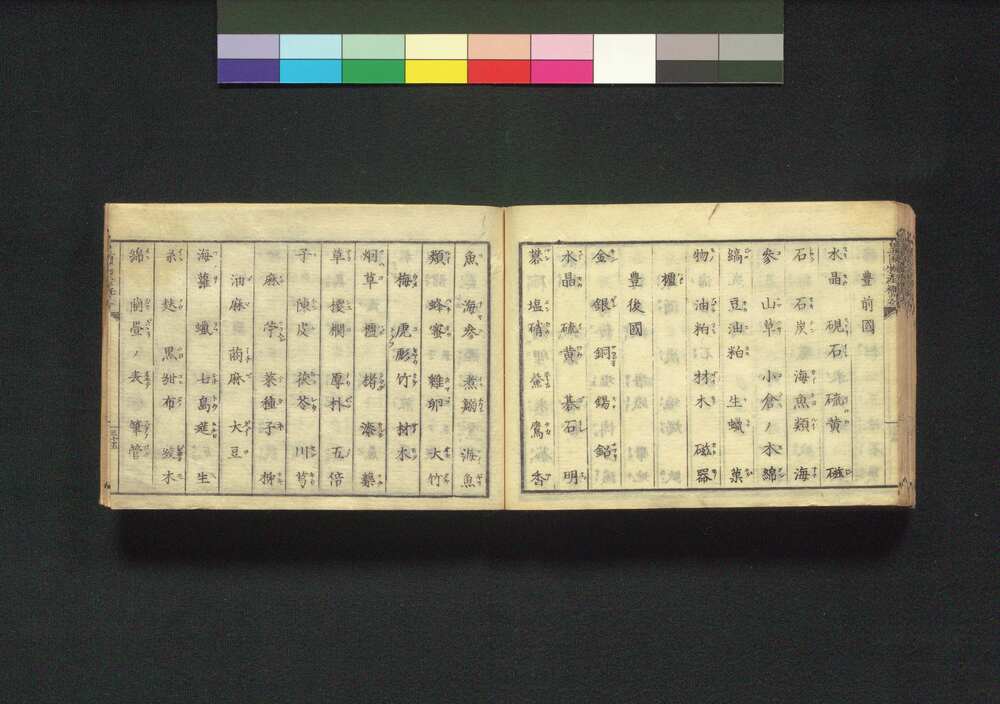 豊前國
水晶 硯石 硫黄 磁
石 石炭 海魚類 海
參 山草 小倉ノ木綿
縞 豆油粕 生蠟 菓
物 油粕 材木 磁器
櫨
豊後國
金 銀 銅 錫 鉛
水晶 硫黄 碁石 明
礬 塩硝 鷹 香
魚 海参 煮鰯 海魚
類 蜂蜜 雞卵 大竹
梅 虎彫竹 材木
烟草 櫨 楮 漆 藥
草 椶櫚 厚朴 五倍
子 陳皮 茯苓 川芎
麻 苧 菜種子 栁
油麻 䔥麻 大豆
海蘿 蠟 七島筵 生
糸 麩 黒
布 木
綿 藺疊ノ表 筆管